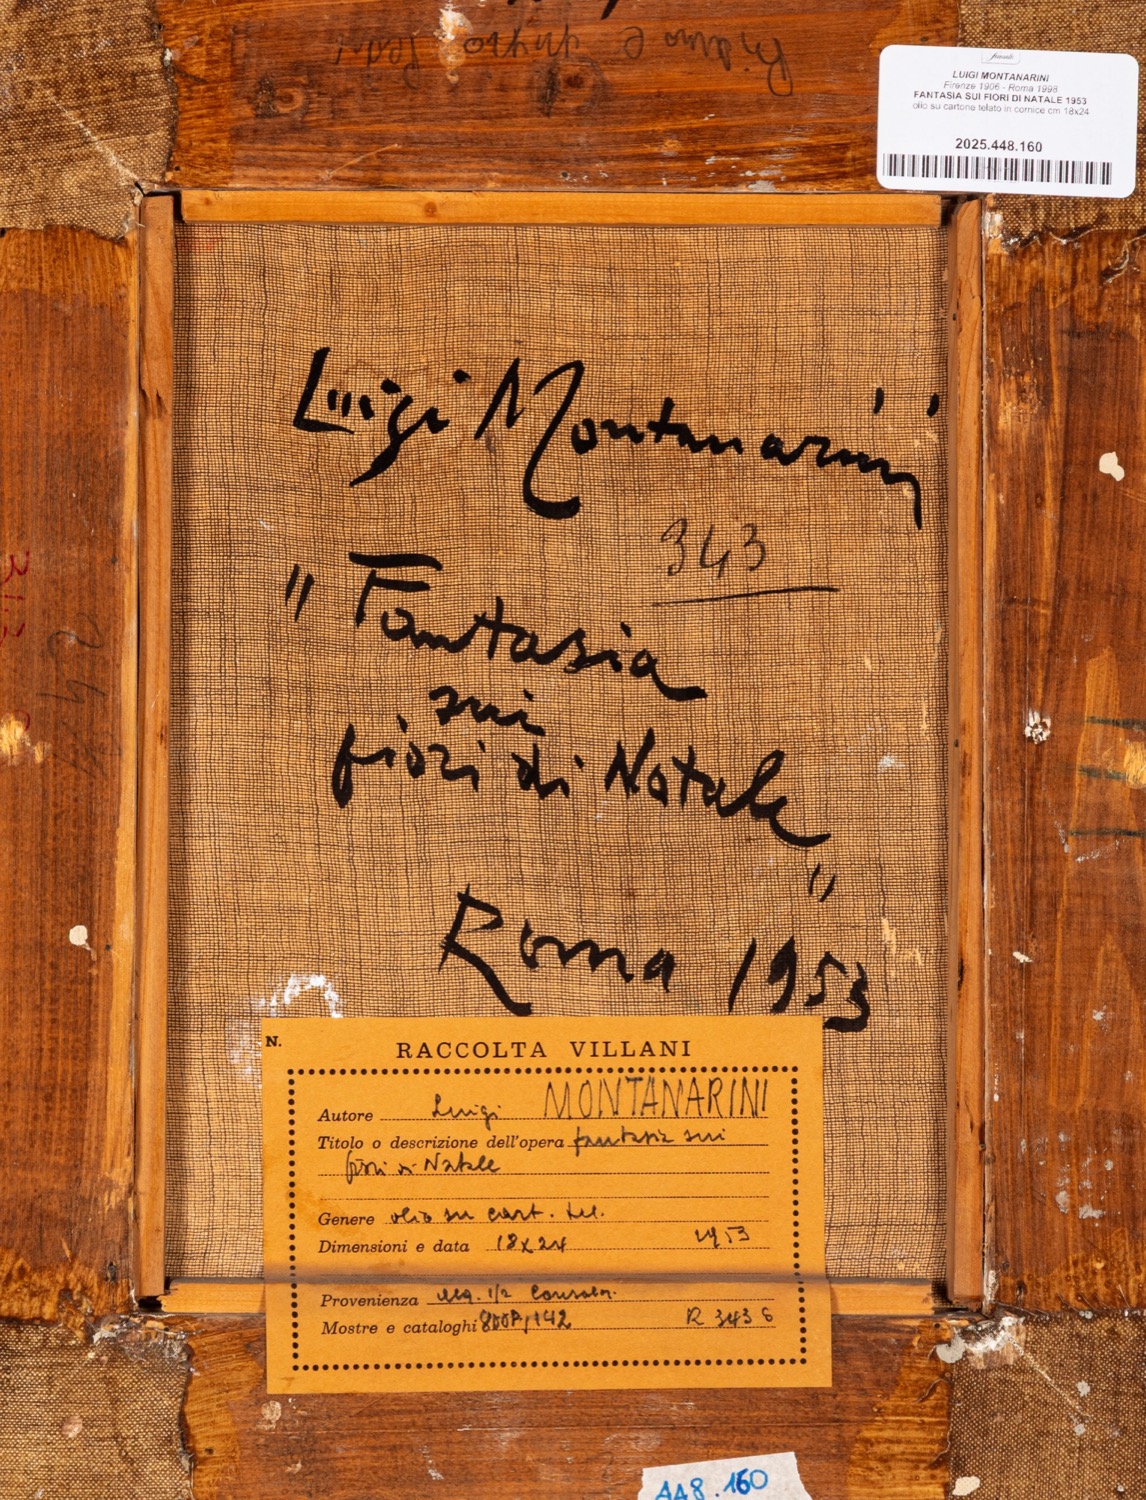 LUIGI MONTANARINI
Firenze 1906 - Roma 1998
FANTASIA SUI FIORI DI NATALE 1953
olio su cartone telato in cornice cm 18x24
2025.448.160
Luigi Montanarini
343
"Fantasia
sui
fiori di Natale"
Roma 1953
N.
RACCOLTA VILLANI
Autore Luigi MONTANARINI
Titolo o descrizione dell'opera fantasia sui
fiori di Natale
Genere olio su cart. tel.
Dimensioni e data 18x24 1953
Provenienza
Mostre e cataloghi 800P/142 R 343 6
448.160